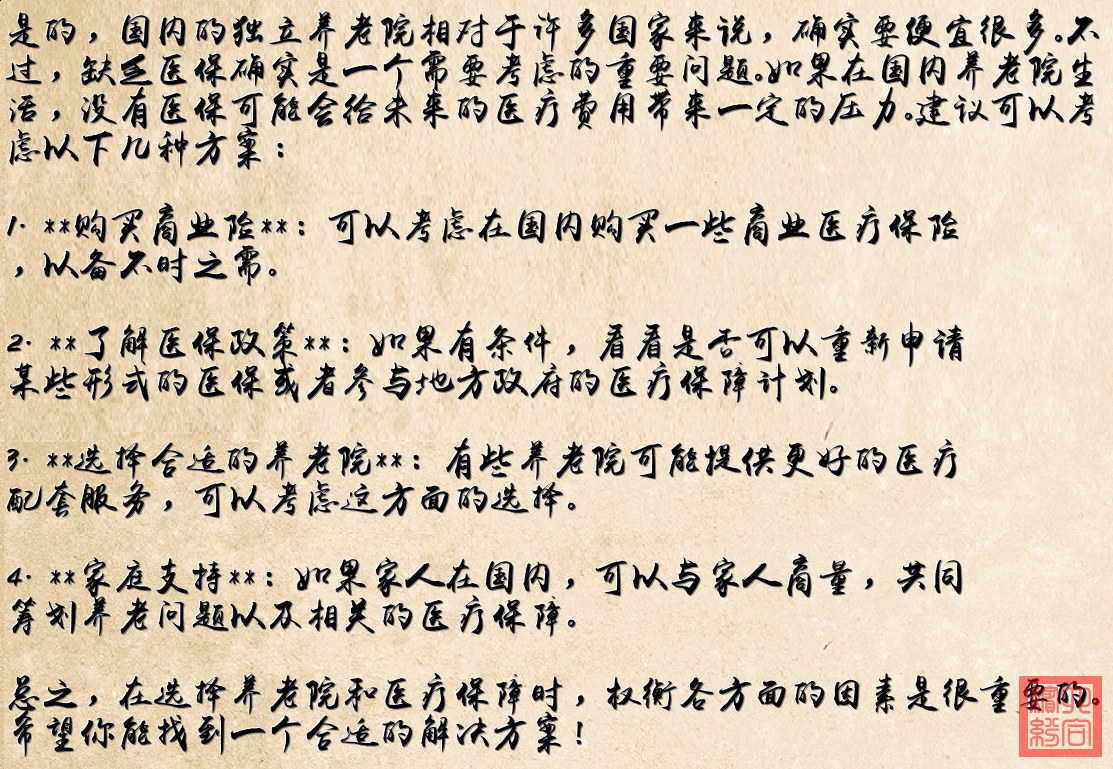 是的，国内的独立养老院相对于许多国家来说，确实要便宜很多。不
过，缺乏医保确实是一个需要考虑的重要问题。如果在国内养老院生
活，没有医保可能会给未来的医疗费用带来一定的压力。建议可以考
虑以下几种方案：
1. **购买商业险**：可以考虑在国内购买一些商业医疗保险
，以备不时之需。
2. **了解医保政策**：如果有条件，看看是否可以重新申请
某些形式的医保或者参与地方政府的医疗保障计划。
3. **选择合适的养老院**：有些养老院可能提供更好的医疗
配套服务，可以考虑这方面的选择。
4. **家庭支持**：如果家人在国内，可以与家人商量，共同
筹划养老问题以及相关的医疗保障。
总之，在选择养老院和医疗保障时，权衡各方面的因素是很重要的。
希望你能找到一个合适的解决方案！